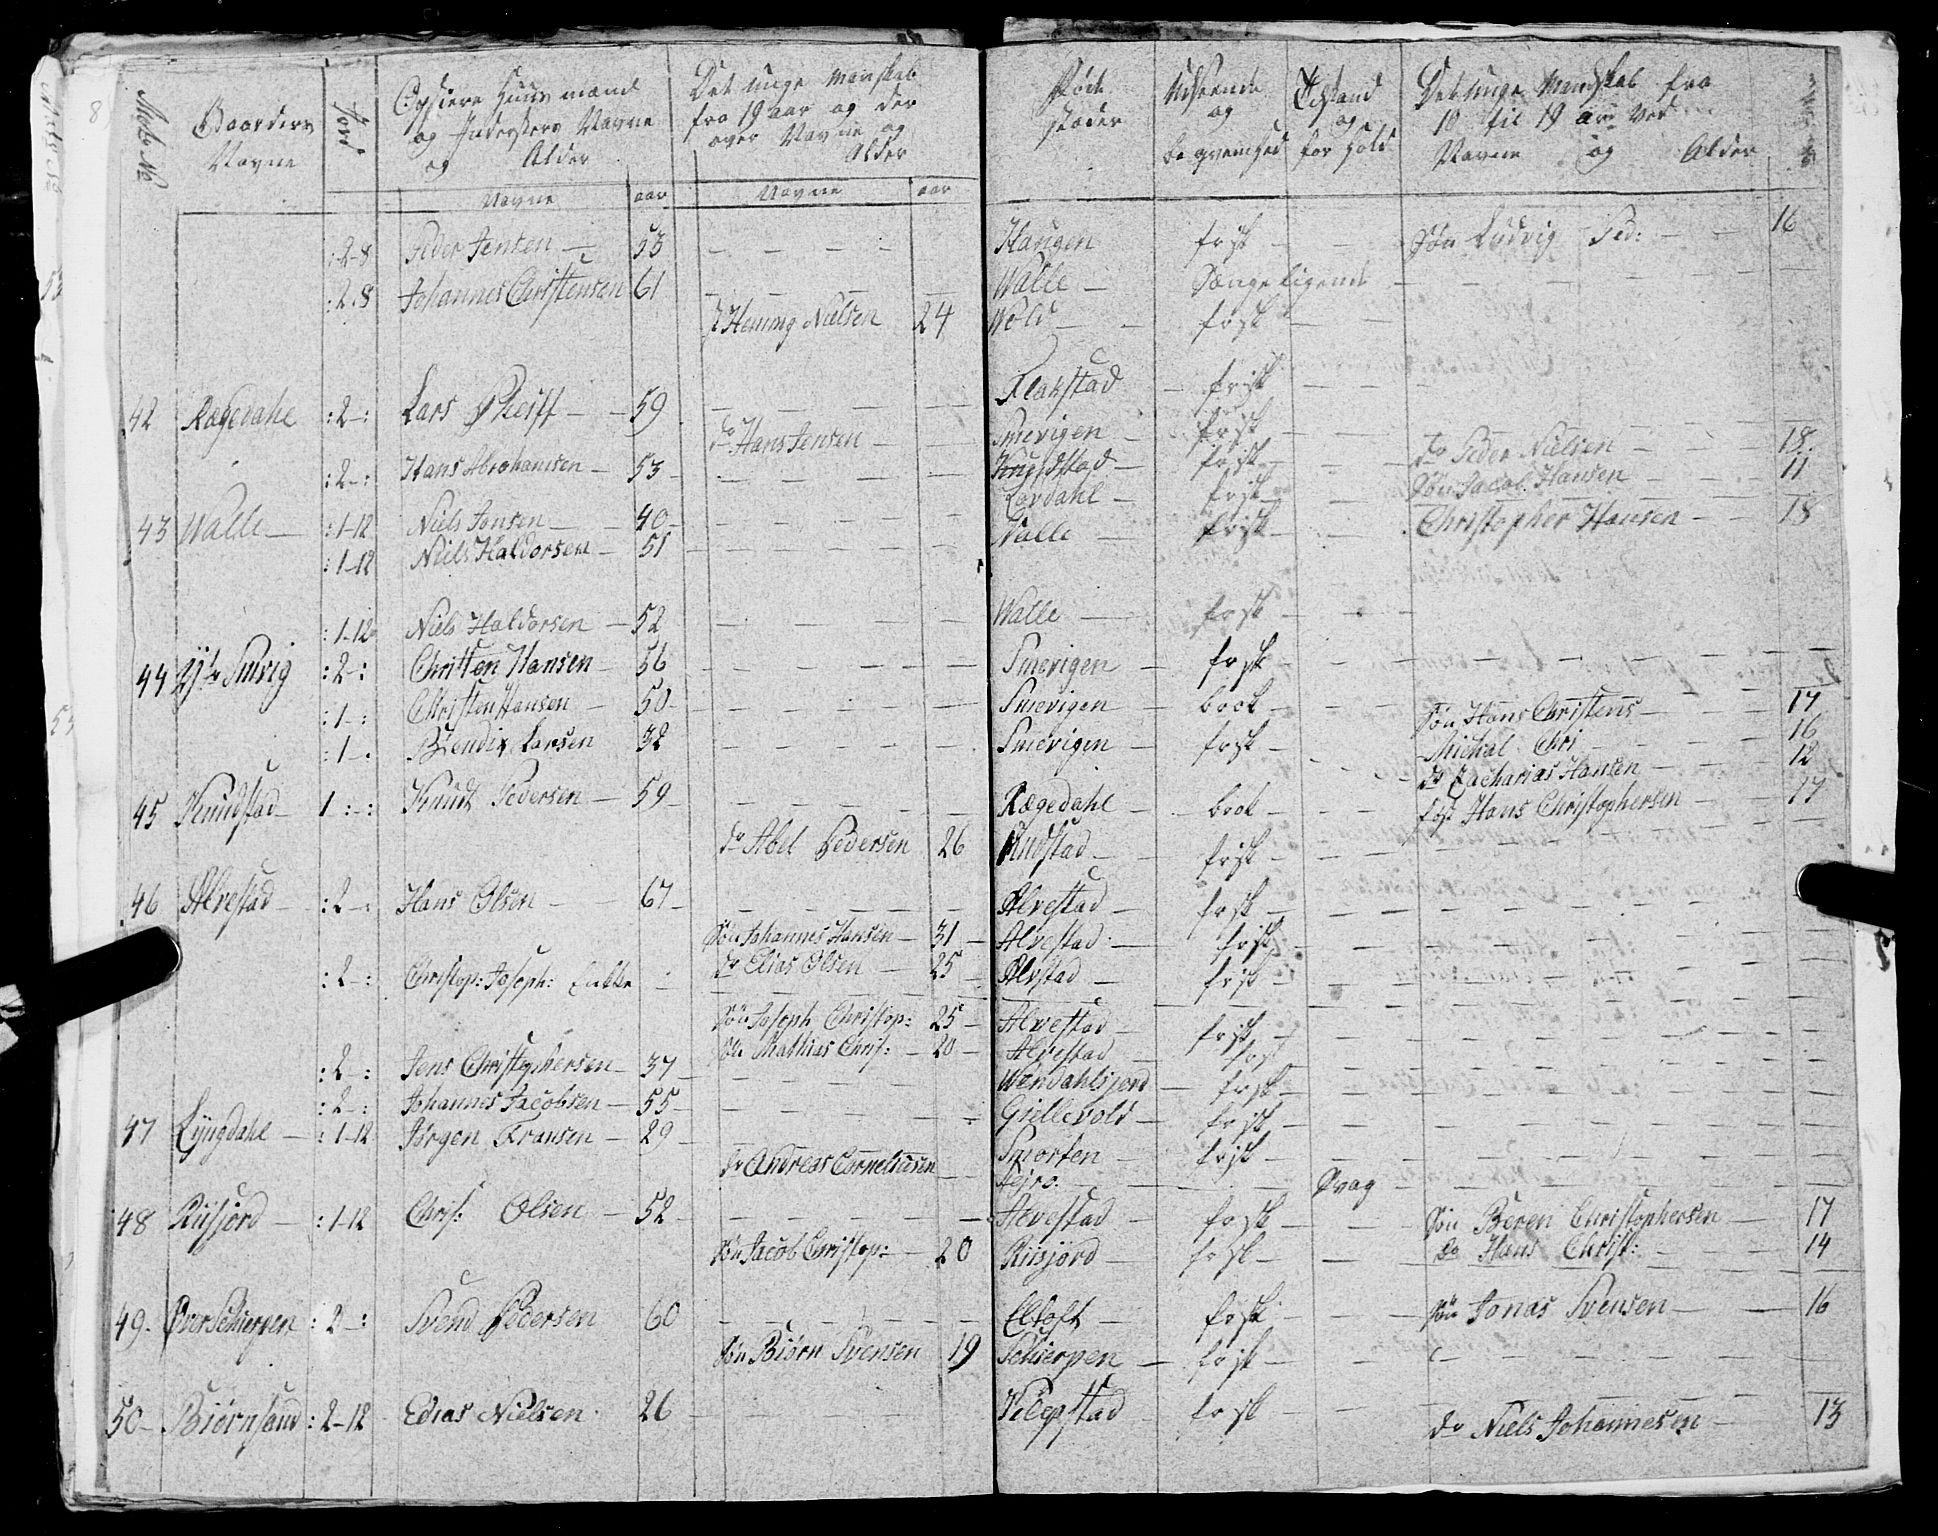 8
Matr No | Gaardens Navne | Jord | Opsiere Huusmænd og Inderster Navne og Alder | Det unge Manskab fra 19 aar og der over Navne og Alder | Føde stæder | Udseende og beqvemhed | Tilstand og forhold | Det unge Mandskab fra 10 til 19 aar ved Navne og Alder
Navne | aar | Navne | aar
:2-8 Peder Jensen — 53 Haugen frisk Søn Ludvig Ped: 16
:2.8 Johannes Christensen 61 Walle — Sængeligende
Heming Nielsen 24 Wold frisk
42 Rægedahl :2-: Lars Pheiff — 59 Flakstad frisk
do Hans Jensen — Smevigen frisk
:2-: Hans Abrahamsen — 53 Knudstad — frisk do Peder Nielsen — 18
Lovdahl — frisk Søn Jacob Hansen — 11
43 Walle — :1-12 Niels Jonsen — 40 Walle frisk Christopher Hansen — 18
:1-12 Niels Haldorsen — 51
:1-12 Niels Haldorsen — 52 Walle frisk
44 Ytr Smvig :2-: Christen Hansen — 56 Smevigen — frisk
:1-: Christen Hansen — 50 Smevigen — brok Søn Hans Christens — 17
:1-: Bendix Larsen 32 Smevigen — frisk Michal Chri 16
do Zacharias Hansen — 12
45 Knudstad — 1:-: Knudt Pedersen — 59 Rægedahl — brok Hans Christophersen — 17
do Abel Pedersen 26 Knudstad — frisk
46 Alvestad — :2-: Hans Olsen — 67 Alvestad — frisk
Søn Johannes Hansen — 31 Alvestad — frisk
:2-: Christop: Joseph: Enkke do Elias Olsen — 25 Alvstad — frisk
Søn Joseph Christop: 25 Alvestad — frisk
Søn Mathias Chris: — 20 Alvestad frisk
:2-: Jens Christophersen — 37 Wendahlsjord — frisk
:2-: Johannes Jacobsen — 55 Grillevold — frisk
47 Lyngdahl — :1-12 Jørgen Fransen — 29 Smorten — frisk
do Andreas Corneliusen — Svag
48 Riisjord — :1-12 Chris: Olsen — 52 Alvestad — frisk Søn Beren Christophersen — 17
Søn Jacob Christop: — 20 Riisjord — frisk do Hans Christ: 14
49. Øver Schierpen :2-: Svend Pedersen 60 Eltoft — frisk Søn Jonas Svensen — 16
Søn Biørn Svensen 19 Schierpen — frisk
50 Biørnsand :2-12 Edias Nielsen 26 frisk do Niels Johannesen — 13